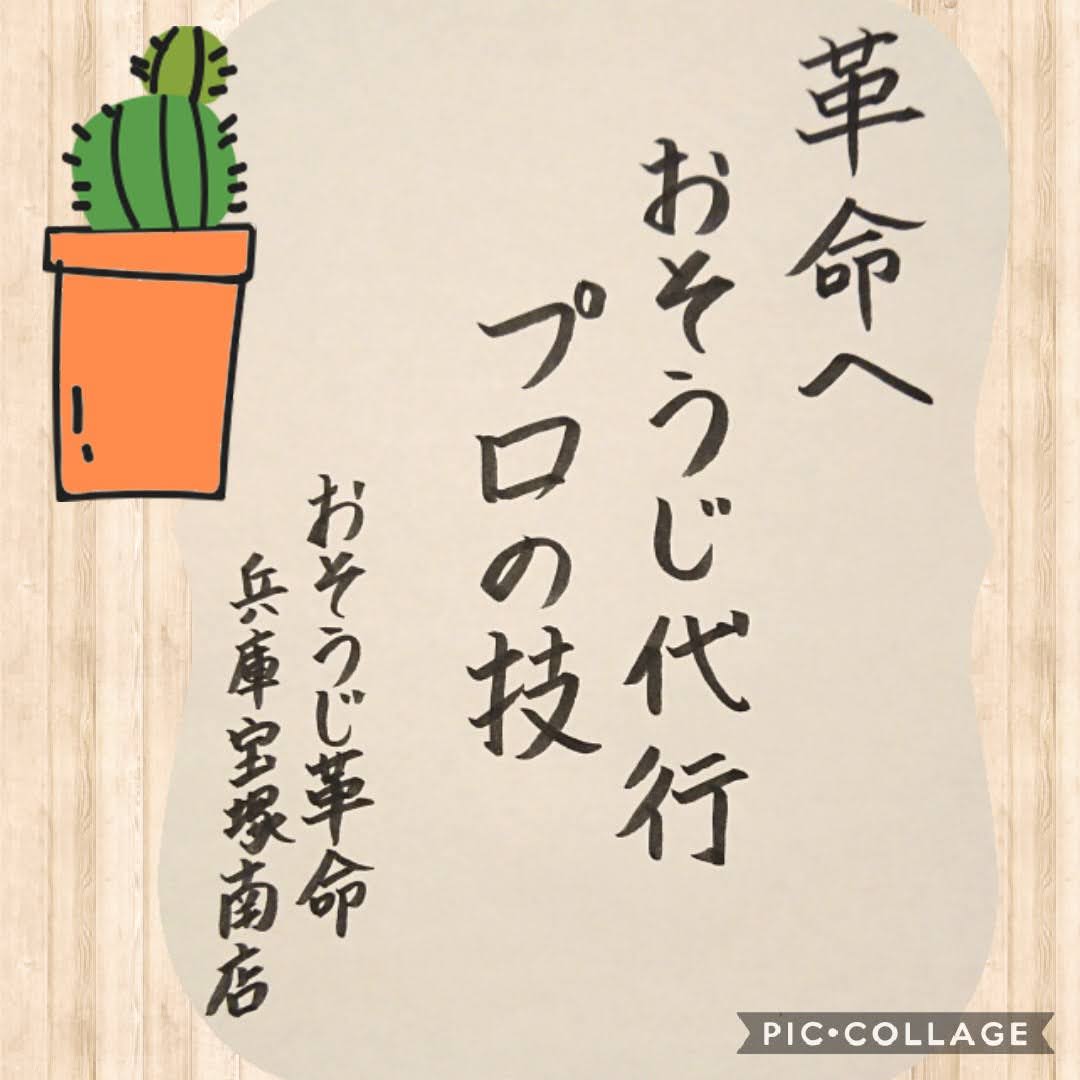 革命へ
おそうじ代行
プロの技
おそうじ革命
兵庫宝塚南店
PIC•COLLAGE